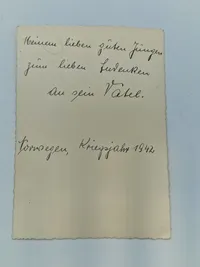 Meinem lieben guten Jungen
zum lieben Gedenken
an sein Vatel.
Norwegen, Kriegsjahr 1942